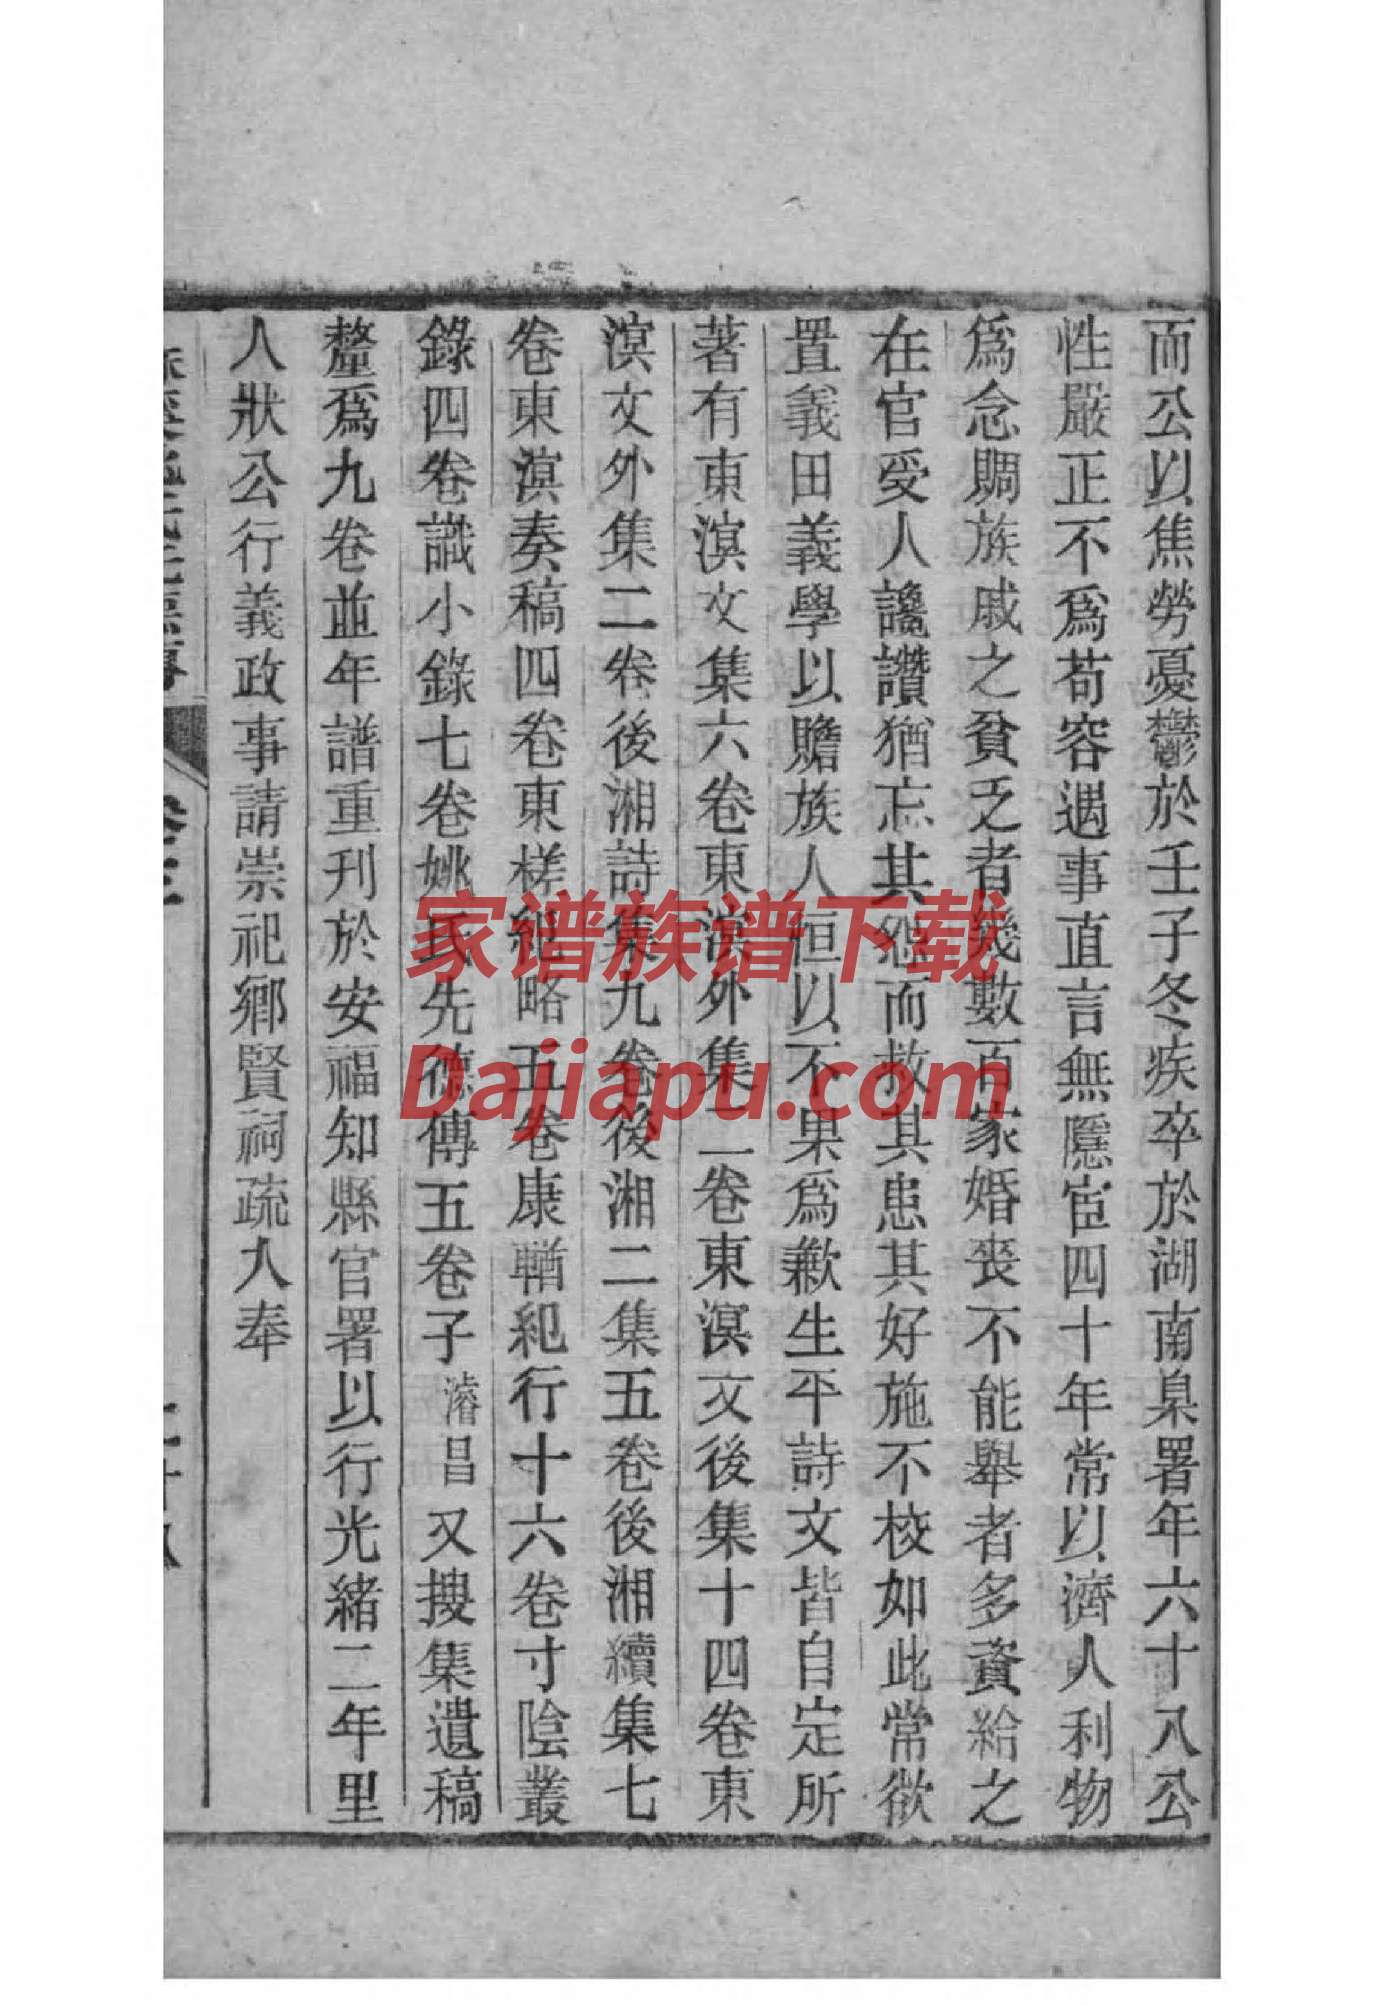 而公以焦勞憂鬱於壬子冬疾卒於湖南臬署年六十八公
性嚴正不爲苟容遇事直言無隱宦四十年常以濟人利物
爲念賙族戚之貧乏者幾數百家婚喪不能舉者多資給之
在官受人讒讚猶忘其怨而救其患其好施不校如此常欲
置義田義學以贍族人恒以不果爲歉生平詩文皆自定所
著有東溟文集六卷東溟外集二卷東溟文後集十四卷東
溟文外集二卷後湘詩集九卷後湘二集五卷後湘續集七
卷東溟奏稿四卷東槎紀略五卷康輶紀行十六卷寸陰叢
錄四卷識小錄七卷姚氏先德傳五卷子濬昌又搜集遺稿
釐爲九卷並年譜重刊於安福知縣官署以行光緒二年里
人狀公行義政事請崇祀鄉賢祠疏入奉
家谱族谱下载
Dajiapu.com